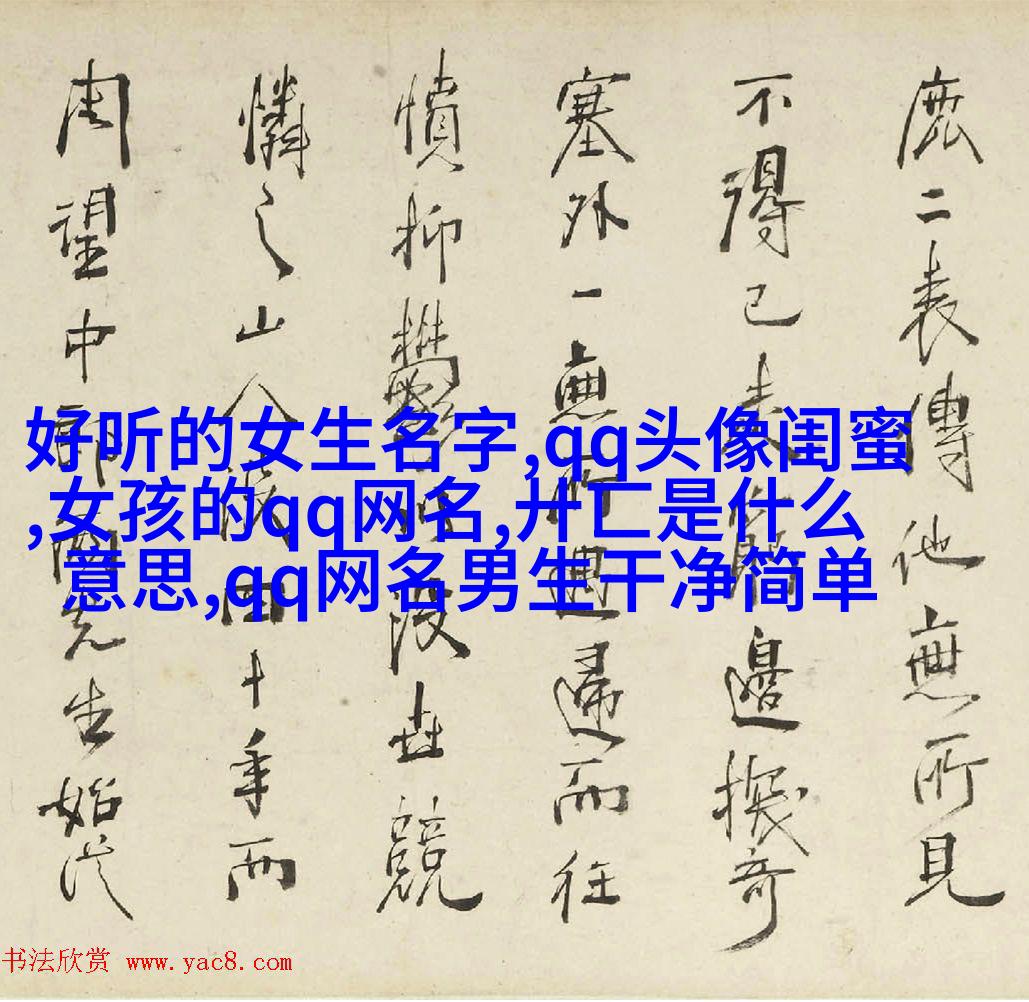 二表傳他無所見
不得已邊奇
塞外一無所遇歸而往
憤抑鬱世競
憐之山人四十年而
周望中郎先生始從
好听的女生名字,qq头像闺蜜
,女孩的qq网名,卄匸是什么
意思,qq网名男生干净简单
书法欣赏 www.yac8.com